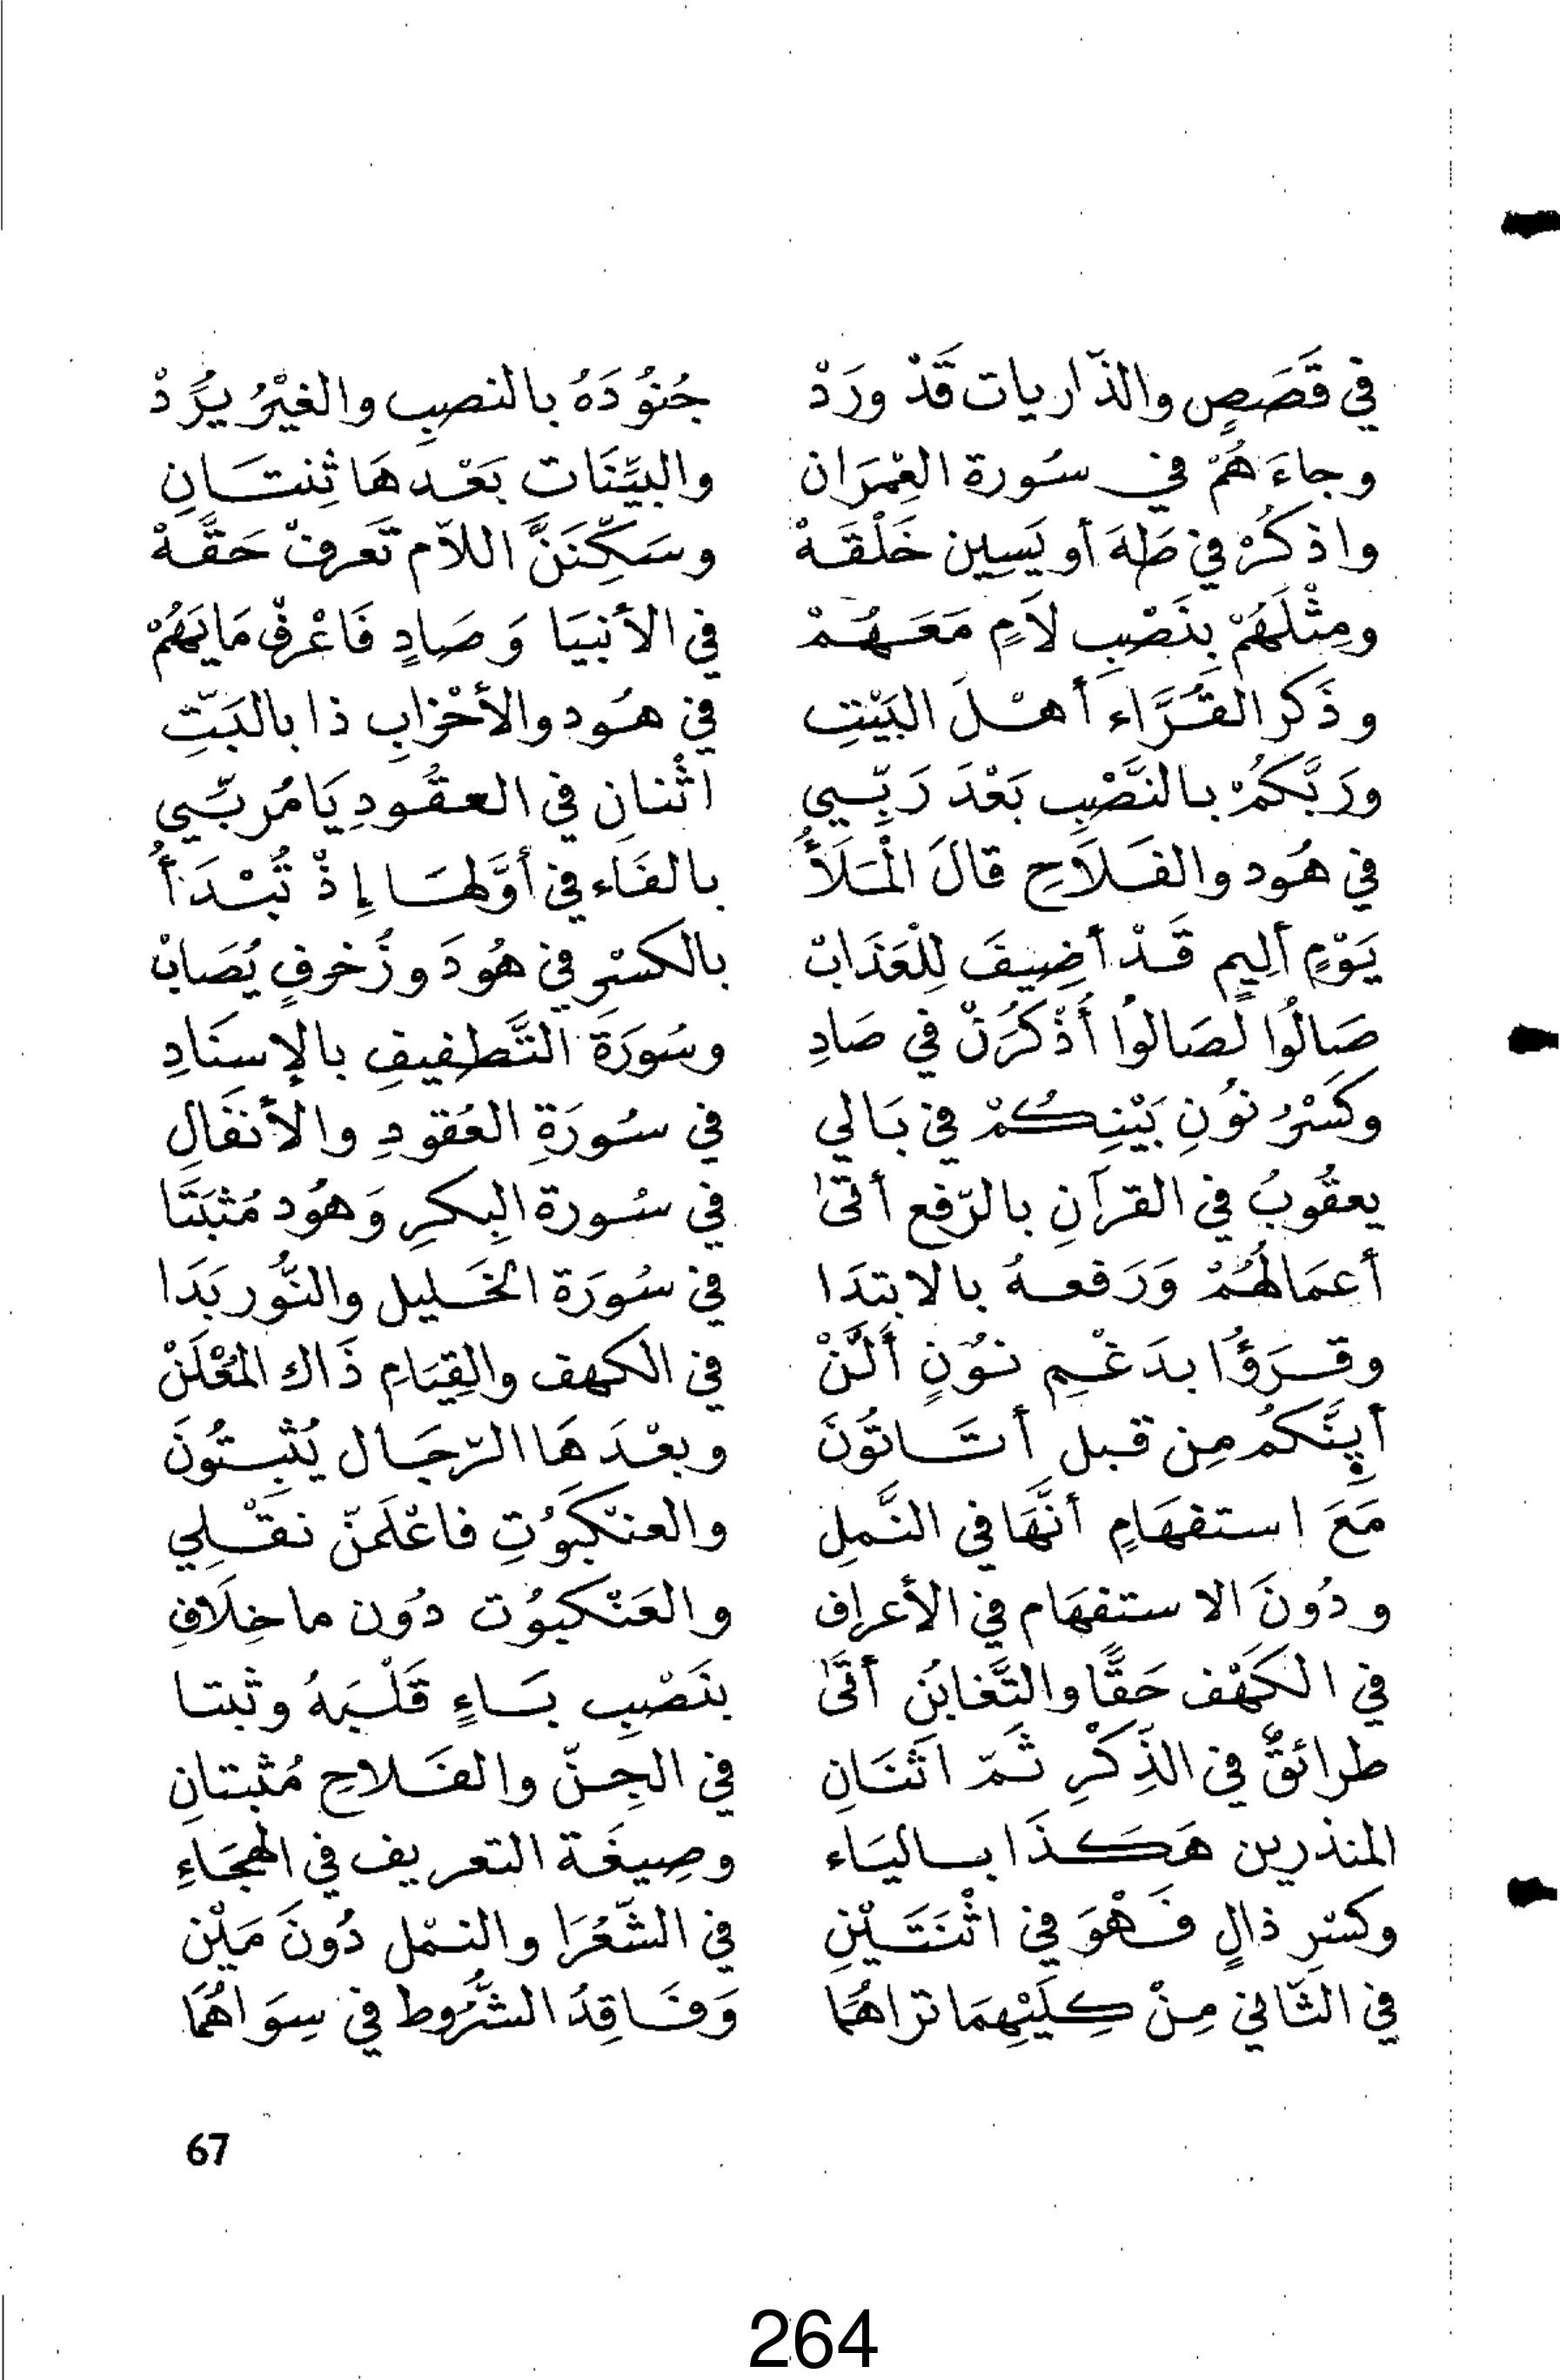 في قَصَصٍ والذّاريات قَدْ ورَدْ جُنُودَهُ بالنصبِ والغيْرُ يُرَدْ
وجاءَهُمْ في سُورة العِمْرَان والبيِّنَاتِ بَعْدهَا ثِنتَانِ
واذكُرْ في طَهَ أو يَسِين خَلْقَهْ وسَكِّنَنَّ اللّام تَعرفْ حَقَّهْ
ومِثْلَهُمْ بِنَصْبِ لاَمٍ مَعَهُمْ في الأنبيَا وَصَادٍ فَاعْرفْ مَايَهُمْ
وذَكر القُرَّاء أهْلَ البَيْتِ في هُود والأحْزابِ ذا بالبَتِّ
ورَبَّكُمْ بالنَّصْبِ بَعْدَ رَبِّيي اثْنانِ في العقُودِ يَا مُربِّيي
في هُود والفَلَاحِ قالَ الْمَلَأُ بالفَاء في أوَّلهَا إذْ تُبْدَأُ
يَوْمٍ ألِيمٍ قَدْ أضِيفَ لِلْعَذَابْ بالكسْرِ في هُودَ وزُخرفٍ يُصَابْ
صَالُوا لَصَالُوا أُذْكُرَنْ في صَادِ وسُورَةَ التَّطفِيفِ بالإسنَادِ
وكَسْرُ نُونِ بَيْنِكُمْ في بَالي في سُورَةِ العُقودِ والأنفَالِ
يعقُوبُ في القرآنِ بالرّفع أتَىٰ في سُورة البِكرِ وَهُود مُثبَتَا
أعمَالُهُمْ وَرَفعهُ بالابتدَا في سُورَة الخَليل والنُّور بَدَا
وقرَؤُا بدَغْمِ نُونٍ أَلَّنْ في الكهف والقِيَامِ ذَاك المُعْلَنْ
أيِنَّكمُ مِن قبل أتَاتُونَ وبعْدَهَا الرّجَال يُثبِتُونَ
مَعَ استفهَامٍ أنَّهَا في النَّملِ والعنْكبُوتِ فاعْلَمنّ نقْلِي
ودُونَ الاستفهَام في الأعرافِ والعَنْكبُوت دُون ما خِلَافِ
في الكَهْف حَقًّا والتَّغابُن أتَىٰ بنَصْبِ بَاءٍ قَلْبَهُ وثبتا
طرائقٌ في الذِّكْرِ ثَمّ اثنَانِ في الجِنّ والفَلاحِ مُثبتانِ
المنذرين هَكَذَا باليَاء وصِيغَة التعريف في الهجَاءِ
وكسْرِ ذالٍ فَهْوَ في اثْنَتَيْنِ في الشّعُرَا والنمْل دُونَ مَيْنِ
في الثّاني مِنْ كِلَيْهِمَا تراهُمَا وَفَاقِدُ الشُّرُوط في سِوَاهُمَا
67
264